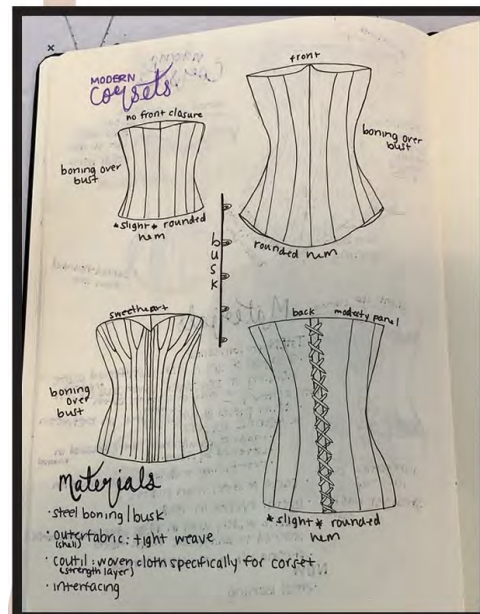 MODERN
Corsets
no front closure
boning over
bust
*slight* rounded
hem
front
boning over
bust
rounded hem
busk
sweetheart
boning
over
bust
back
modesty panel
*slight* rounded
hem
Materials
· steel boning/busk
· outerfabric: tight weave
(shell)
· coutil: woven cloth specifically for corset
(strength layer)
· interfacing